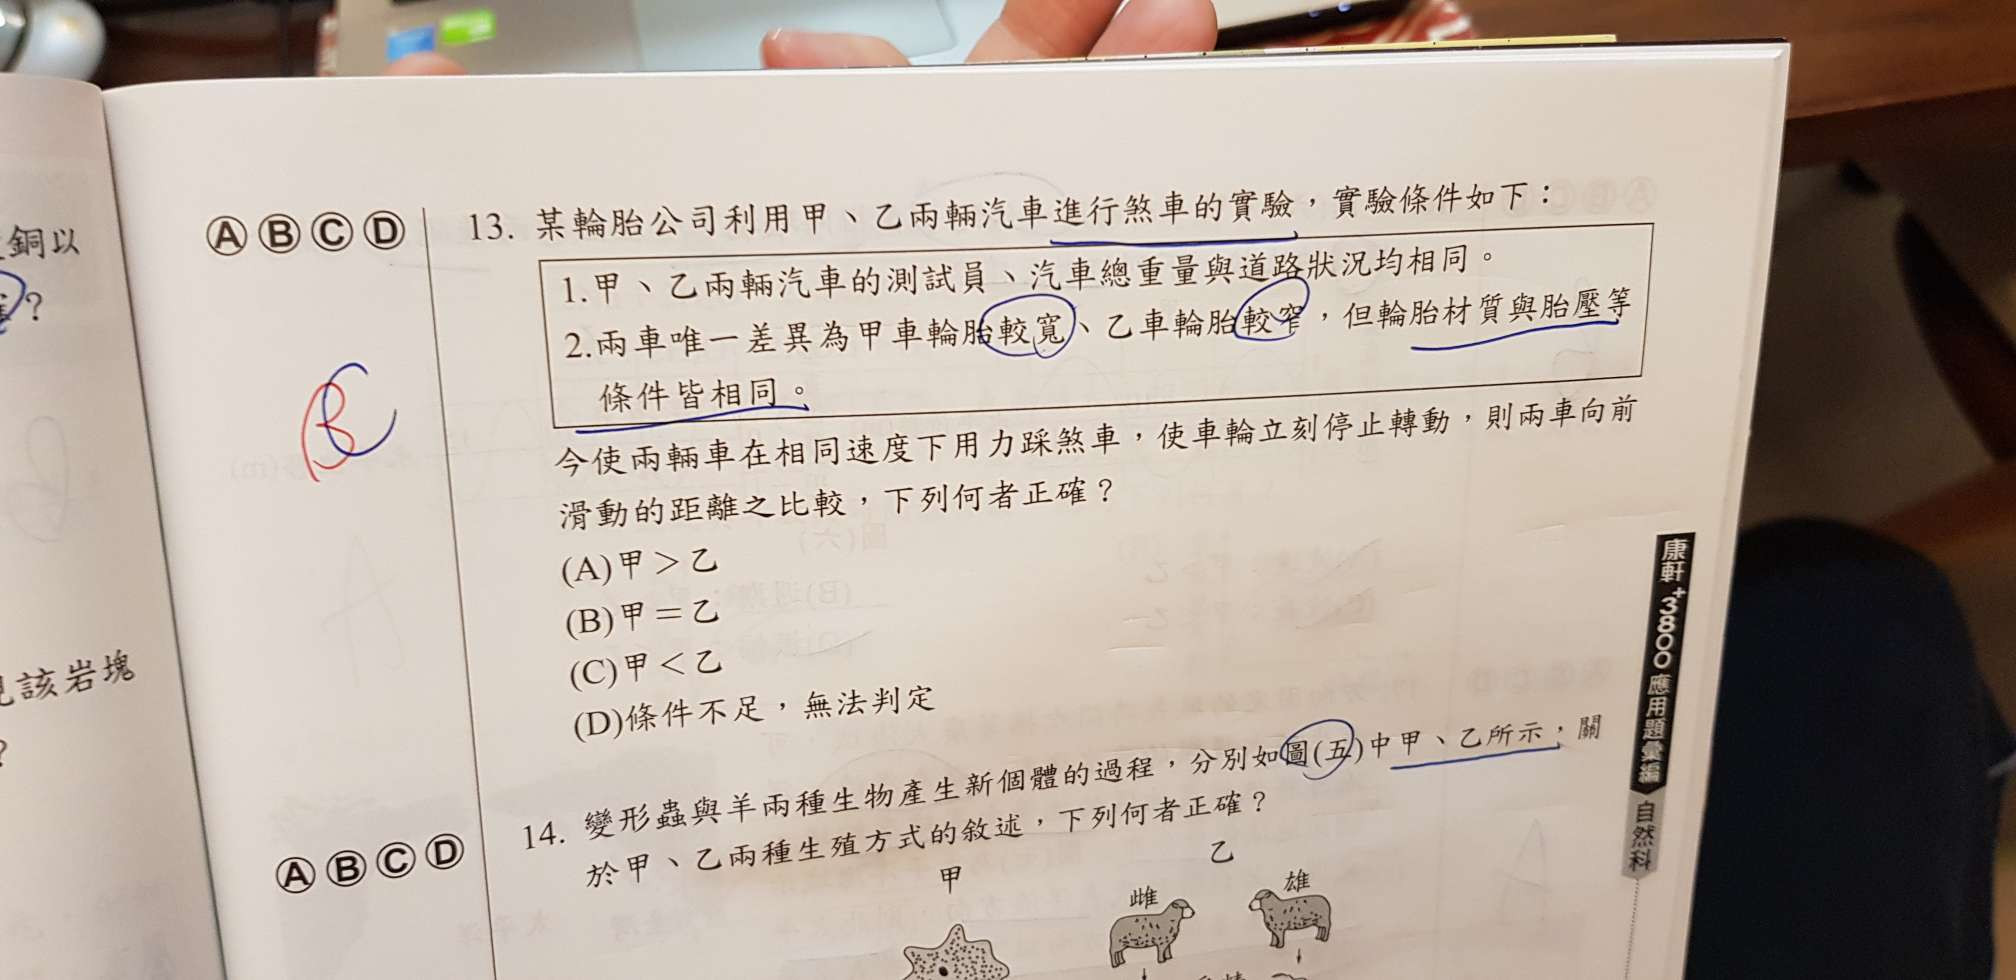 銅以
？
見該岩塊
？
ⒶⒷⒸⒹ
BC
13. 某輪胎公司利用甲、乙兩輛汽車進行煞車的實驗，實驗條件如下：
1.甲、乙兩輛汽車的測試員、汽車總重量與道路狀況均相同。
2.兩車唯一差異為甲車輪胎較寬、乙車輪胎較窄，但輪胎材質與胎壓等
條件皆相同。
今使兩輛車在相同速度下用力踩煞車，使車輪立刻停止轉動，則兩車向前
滑動的距離之比較，下列何者正確？
(A)甲＞乙
(B)甲＝乙
(C)甲＜乙
(D)條件不足，無法判定
ⒶⒷⒸⒹ
14. 變形蟲與羊兩種生物產生新個體的過程，分別如圖(五)中甲、乙所示，關
於甲、乙兩種生殖方式的敘述，下列何者正確？
甲
乙
雌
雄
康軒+3800應用題彙編
自然科